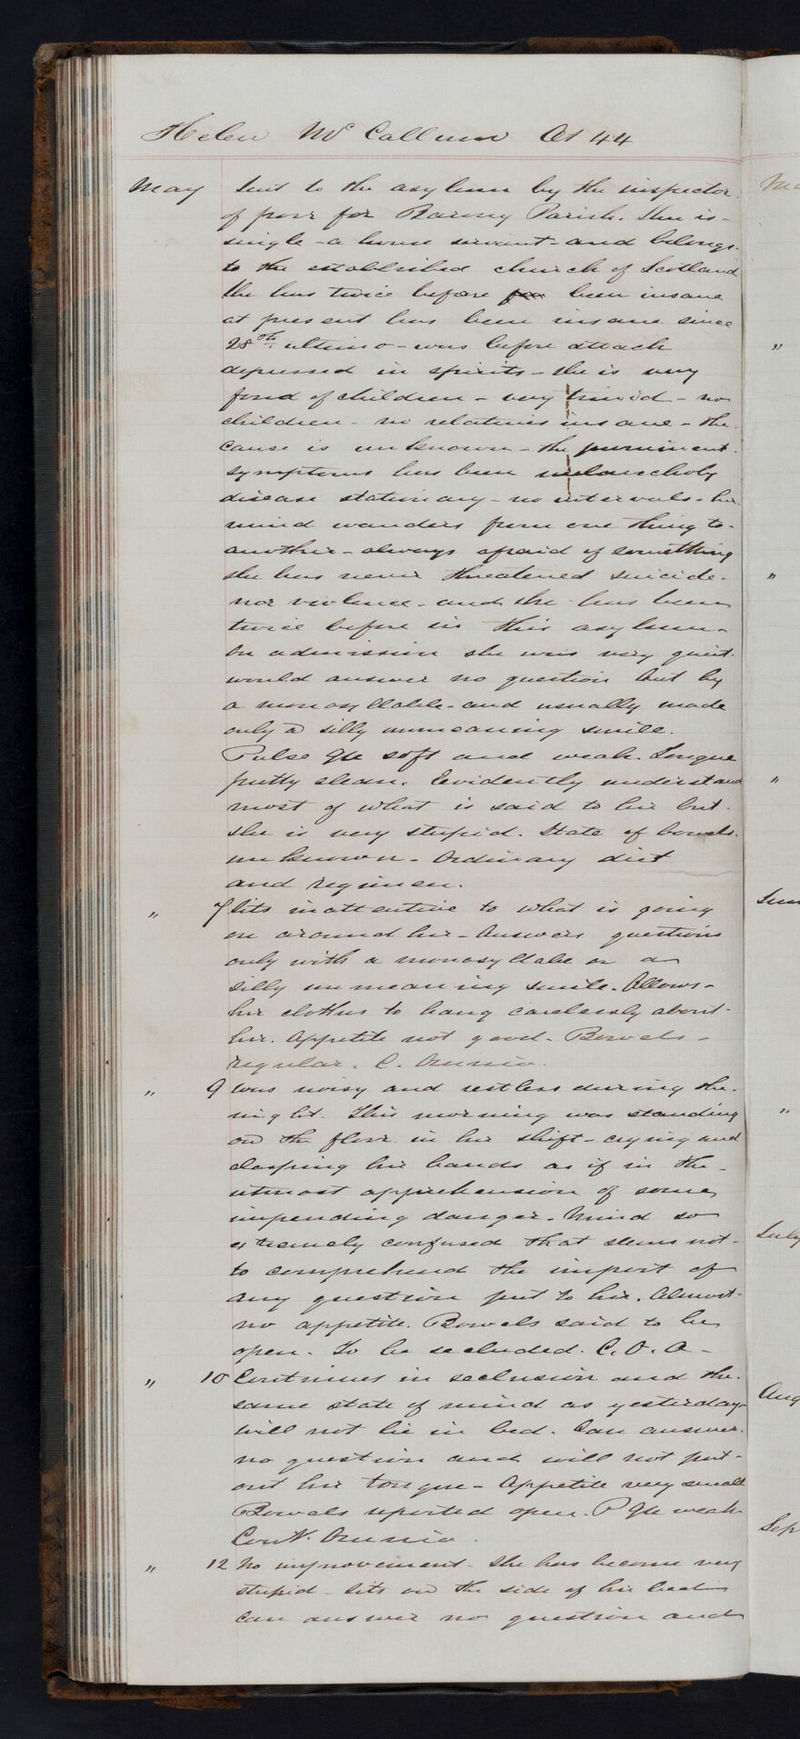 Helen Mc Callum Æt 44
May Sent to the asylum by the inspector
of poor for Barony Parish. She is -
single - a house servant - and belongs
to the established church of Scotland
She has twice before been insane
at present has been insane since
28th ultimo - was before attack
depressed in spirits - she is very
fond of children - very timid - no
children - no relatives insane - the
cause is unknown - the prominent
symptoms has been melancholy
disease stationary - no intervals - her
mind wanders from one thing to -
another - always afraid of something
she has never threatened suicide -
nor violence - and she has been
twice before in this asylum -
On admission she was very quiet
would answer no question but by
a monosyllable - and usually made
only a silly unmeaning smile.
Pulse 96 soft and weak. Tongue
pretty clean. Evidently understand
most of what is said to her but
she is very stupid. State of bowels
unknown - Ordinary diet
and regimen.
" 7 Sits inattentive to what is going
on around her - Answers questions
only with a monosyllable or a
silly unmeaning smile. Allows -
her clothes to hang carelessly about
her. Appetite not good - Bowels -
regular. C. Omnia.
" 9 Was noisy and restless during the
night. This morning was standing
on the floor in her shift - crying and
clasping her hands as if in the -
utmost apprehension of some
impending danger. Mind so
extremely confused that seems not -
to comprehend the import of
any question put to her. Almost
no appetite. Bowels said to be
open. To be secluded. C. O. A -
" 10 Continues in seclusion and the
same state of mind as yesterday
will not lie in bed. Can answer
no question and will not put -
out her tongue - Appetite very small
Bowels reported open. P 96 weak
Contr. Omnia.
" 12 No improvement - She has become very
stupid - sits on the side of her bed
can answer no question and
"
"
"
"
July
Aug
Sep